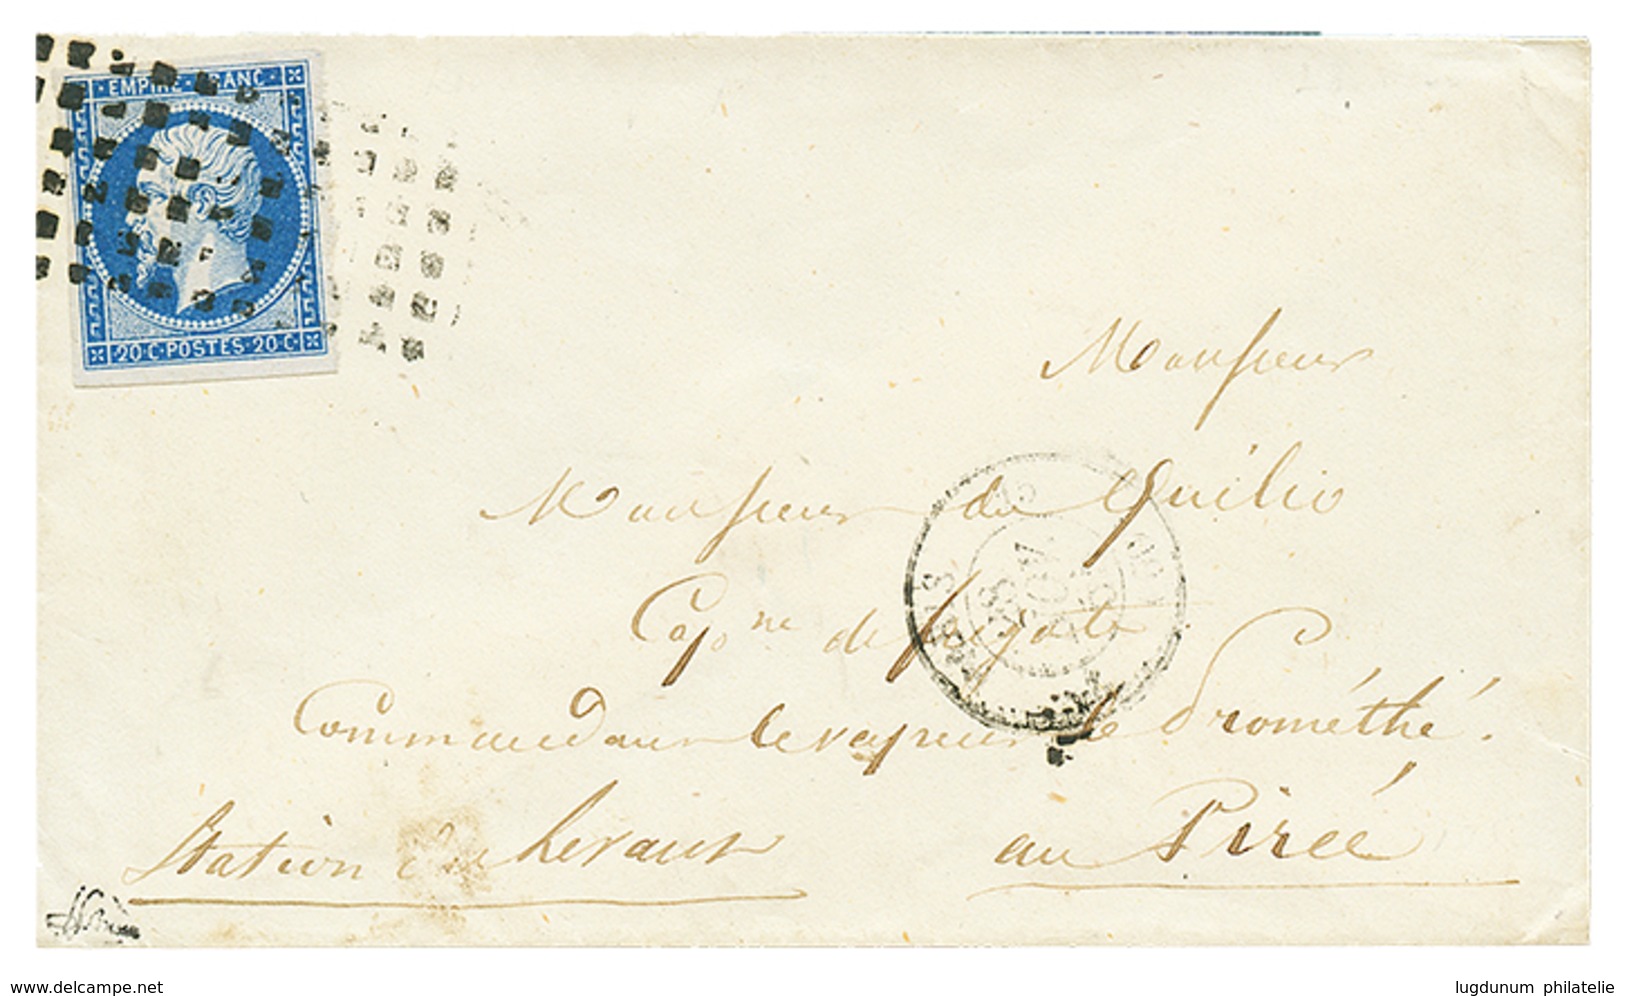 EMPIRE FRANC
20·C·POSTES·20·C
Monsieur
Monsieur du Quilio
Cap.ne de frégate
Commandant le vapeur le Prométhé.
Station du Levant
au Pirée
www.delcampe.net
lugdunum philatelie